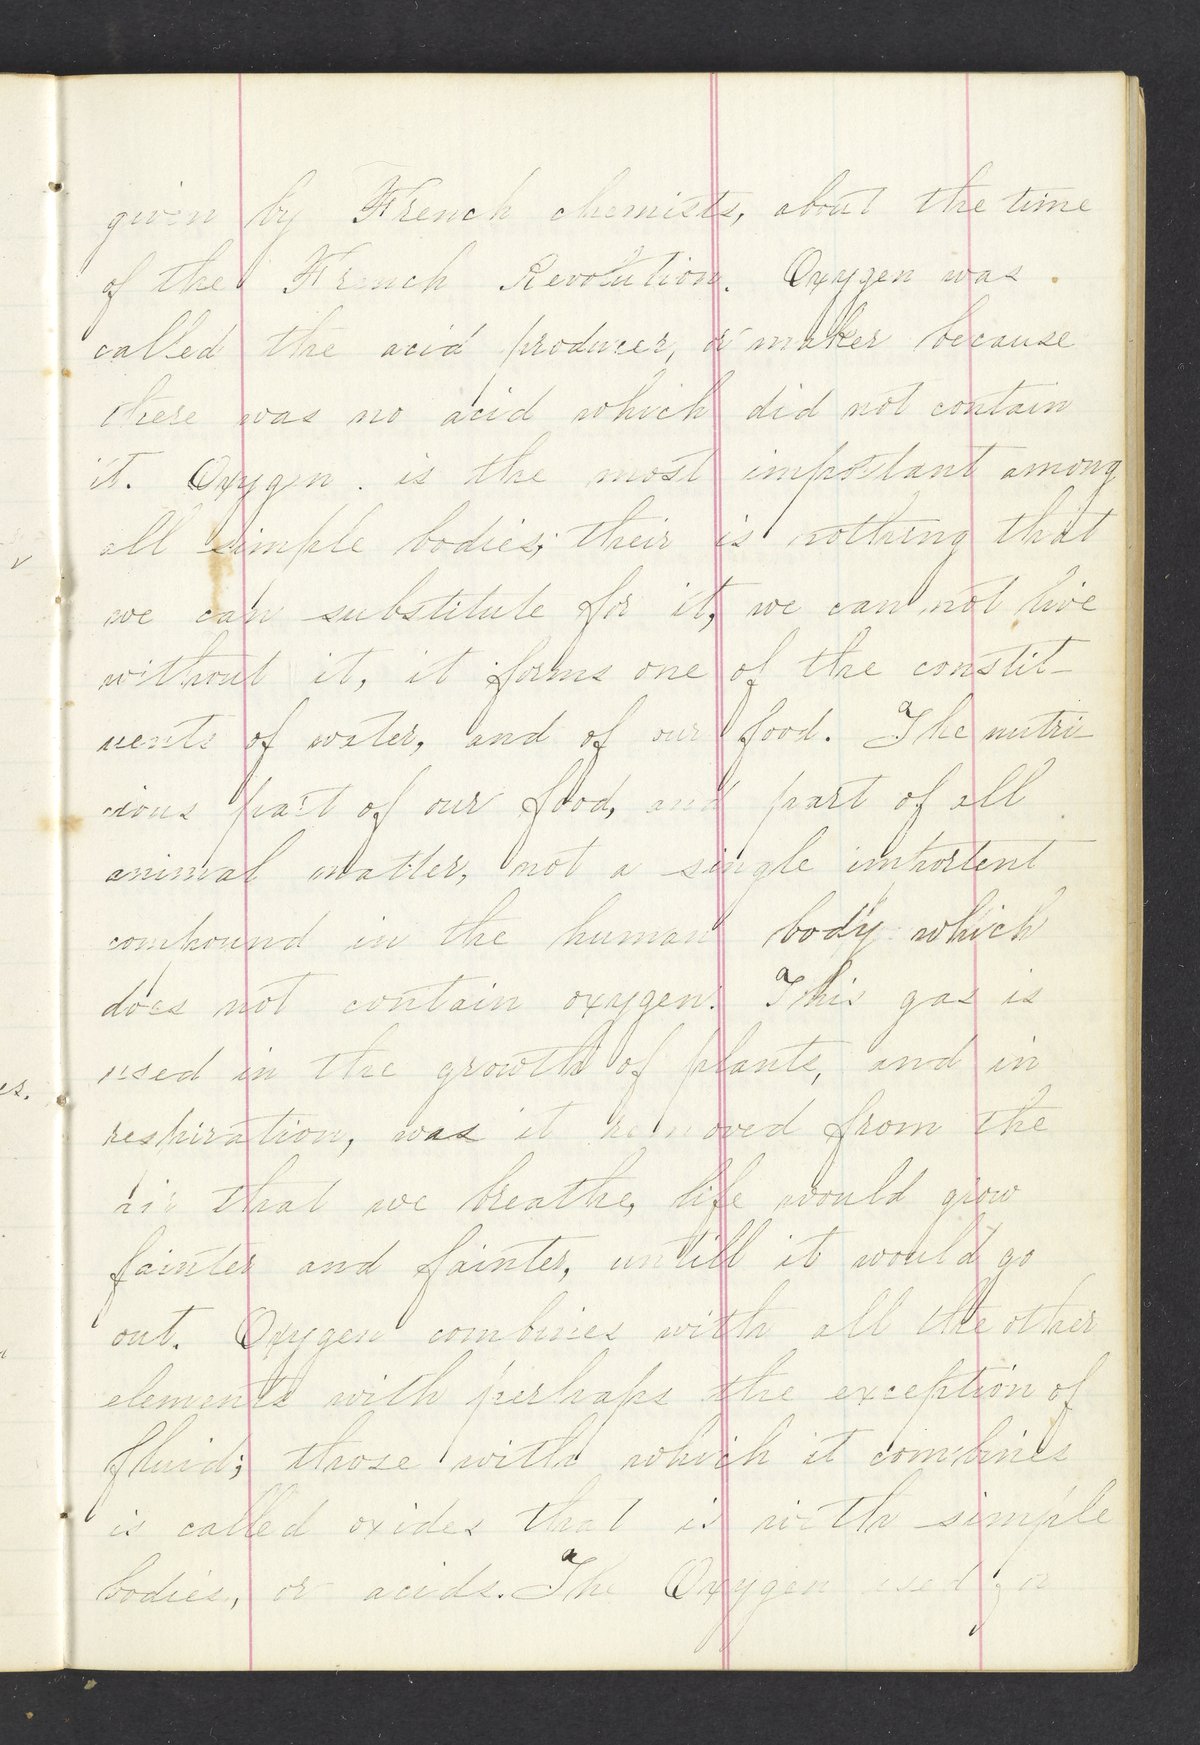 given by French chemists, about the time
of the French Revolution. Oxygen was
called the acid producer, or maker because
there was no acid which did not contain
it. Oxygen is the most important among
all simple bodies; their is nothing that
we can substitute for it, we can not live
without it, it forms one of the constit-
uents of water, and of our food. The nutri-
cious part of our food, and part of all
animal matter, not a single importent
compound in the human body which
does not contain oxygen. This gas is
used in the growth of plants, and in
respiration, was it removed from the
air that we breathe, life would grow
fainter and fainter, untill it would go
out. Oxygen combines with all the other
elements with perhaps the exception of
fluid; those with which it combines
is called oxides that is with simple
bodies, or acids. The Oxygen used for
es.